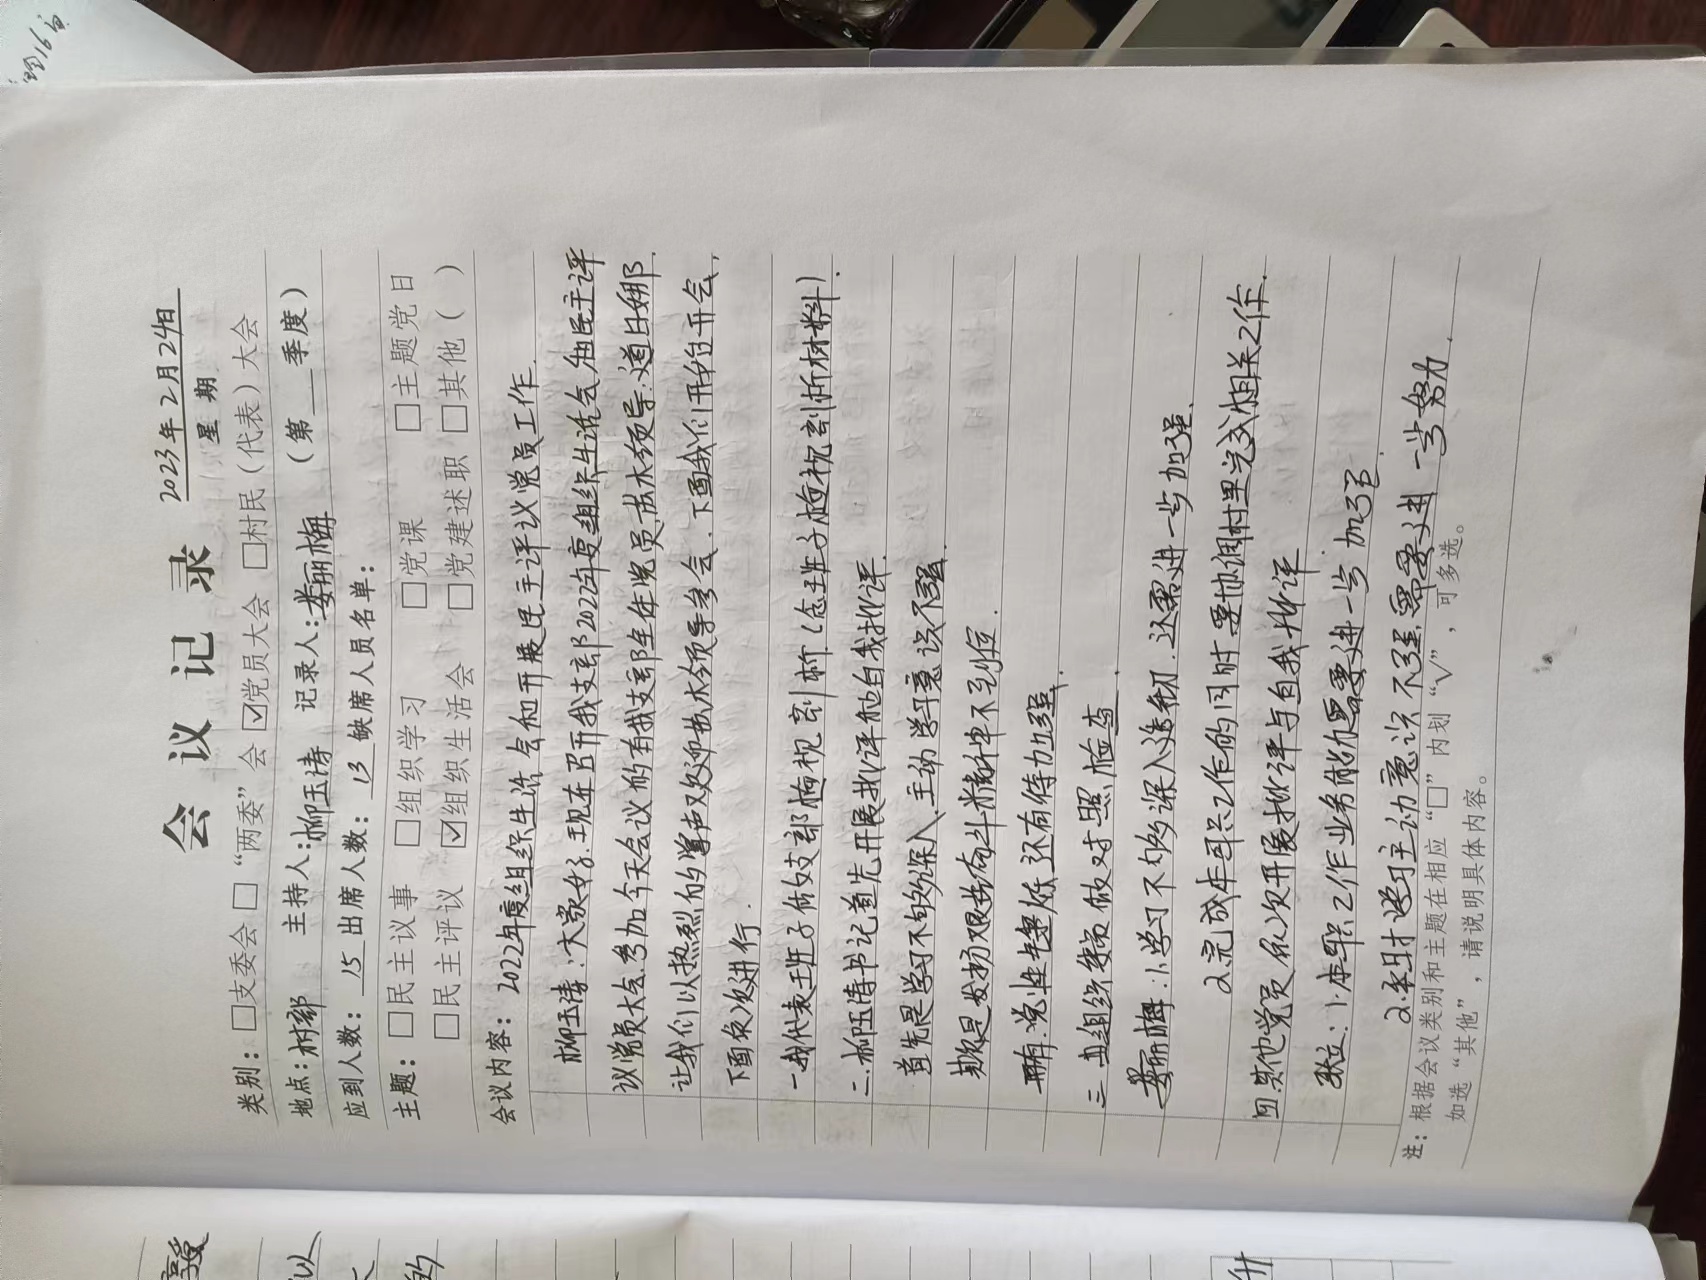 会议记录
2023年2月24日
星期
类别：□支委会 □“两委”会 ☑党员大会 □村民（代表）大会
地点：村部 主持人：柳玉涛 记录人：娄丽梅 （第 季度）
应到人数：15 出席人数：13 缺席人员名单：
主题：□民主议事 □组织学习 □党课 □主题党日
□民主评议 ☑组织生活会 □党建述职 □其他（ ）
会议内容：2022年度组织生活会和开展民主评议党员工作.
柳玉涛：大家好.现在召开我支部2022年度组织生活会和民主评
议党员大会.参加今天会议的有我支部全体党员.
让我们以热烈的掌声欢迎 领导参会.下面我们开始开会,
下面依次进行.
一.我代表班子做支部检视剖析.(念班子检视剖析材料).
二.柳玉涛书记首先开展批评和自我批评.
首先是学习不够深入.主动学习意识不强.
其次是发扬艰苦奋斗精神不到位.
再有:党性锻炼还有待加强.
三.组织委员做对照检查.
娄丽梅：1.学习不够深入透彻.还需进一步加强.
2.完成本职工作的同时要协调村里完成相关工作.
四.其他党员依次开展批评与自我批评
1.本职工作业务能力需要进一步加强.
2.平时学习主动意识不强.需要进一步努力.
注：根据会议类别和主题在相应“□”内划“√”，可多选。
如选“其他”，请说明具体内容。